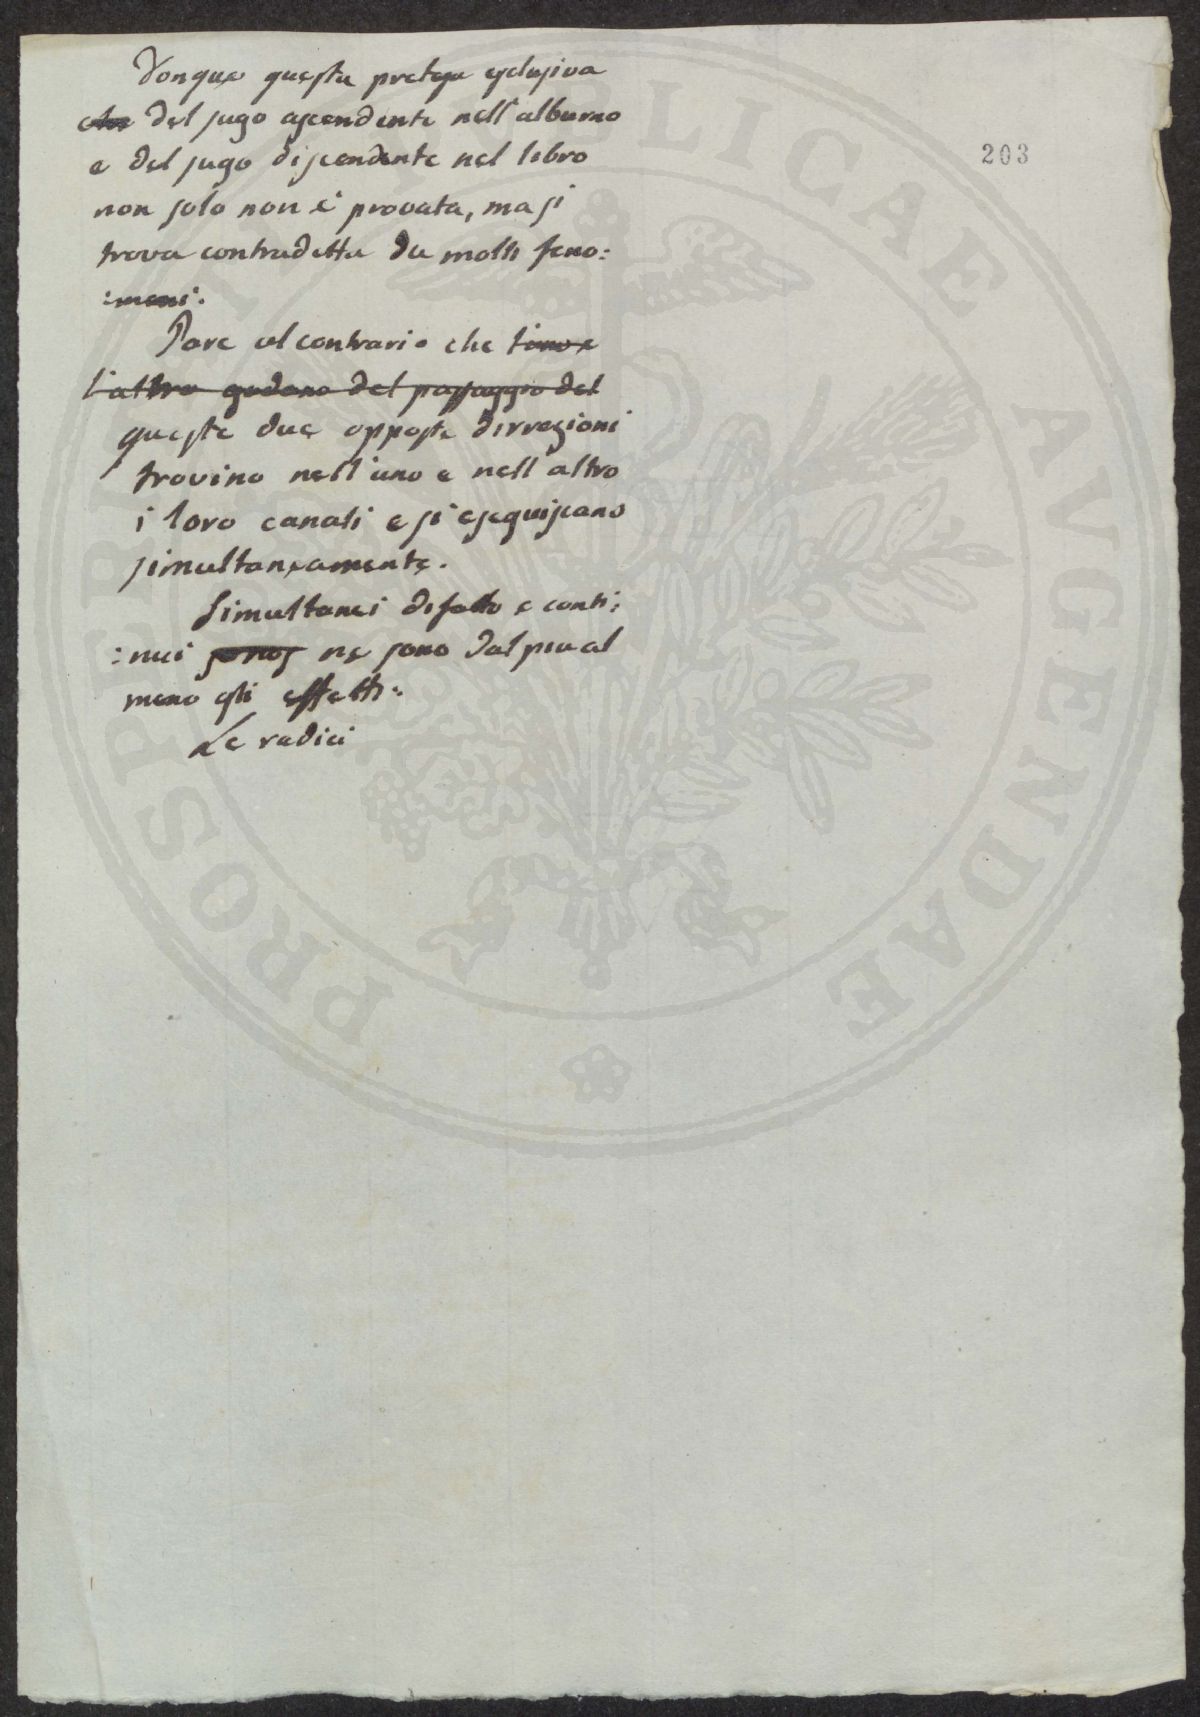 Donque questa pretesa esclusiva
che del sugo ascendente nell'alburno
e del sugo discendente nel libro
203
non solo non è provata, ma si
trova contradetta da molti feno:
:meni:
Pare al contrario che l'uno e
l'altro godano del passaggio del
queste due opposte dirrezioni
trovino nell'uno e nell altro
i loro canali e si eseguiscano
simultaneamente.
Simultanei difatto e conti:
:nui ne sono dal piu al
meno gli effetti:
Le radici
PROSPERITATI PUBLICAE AVGENDAE